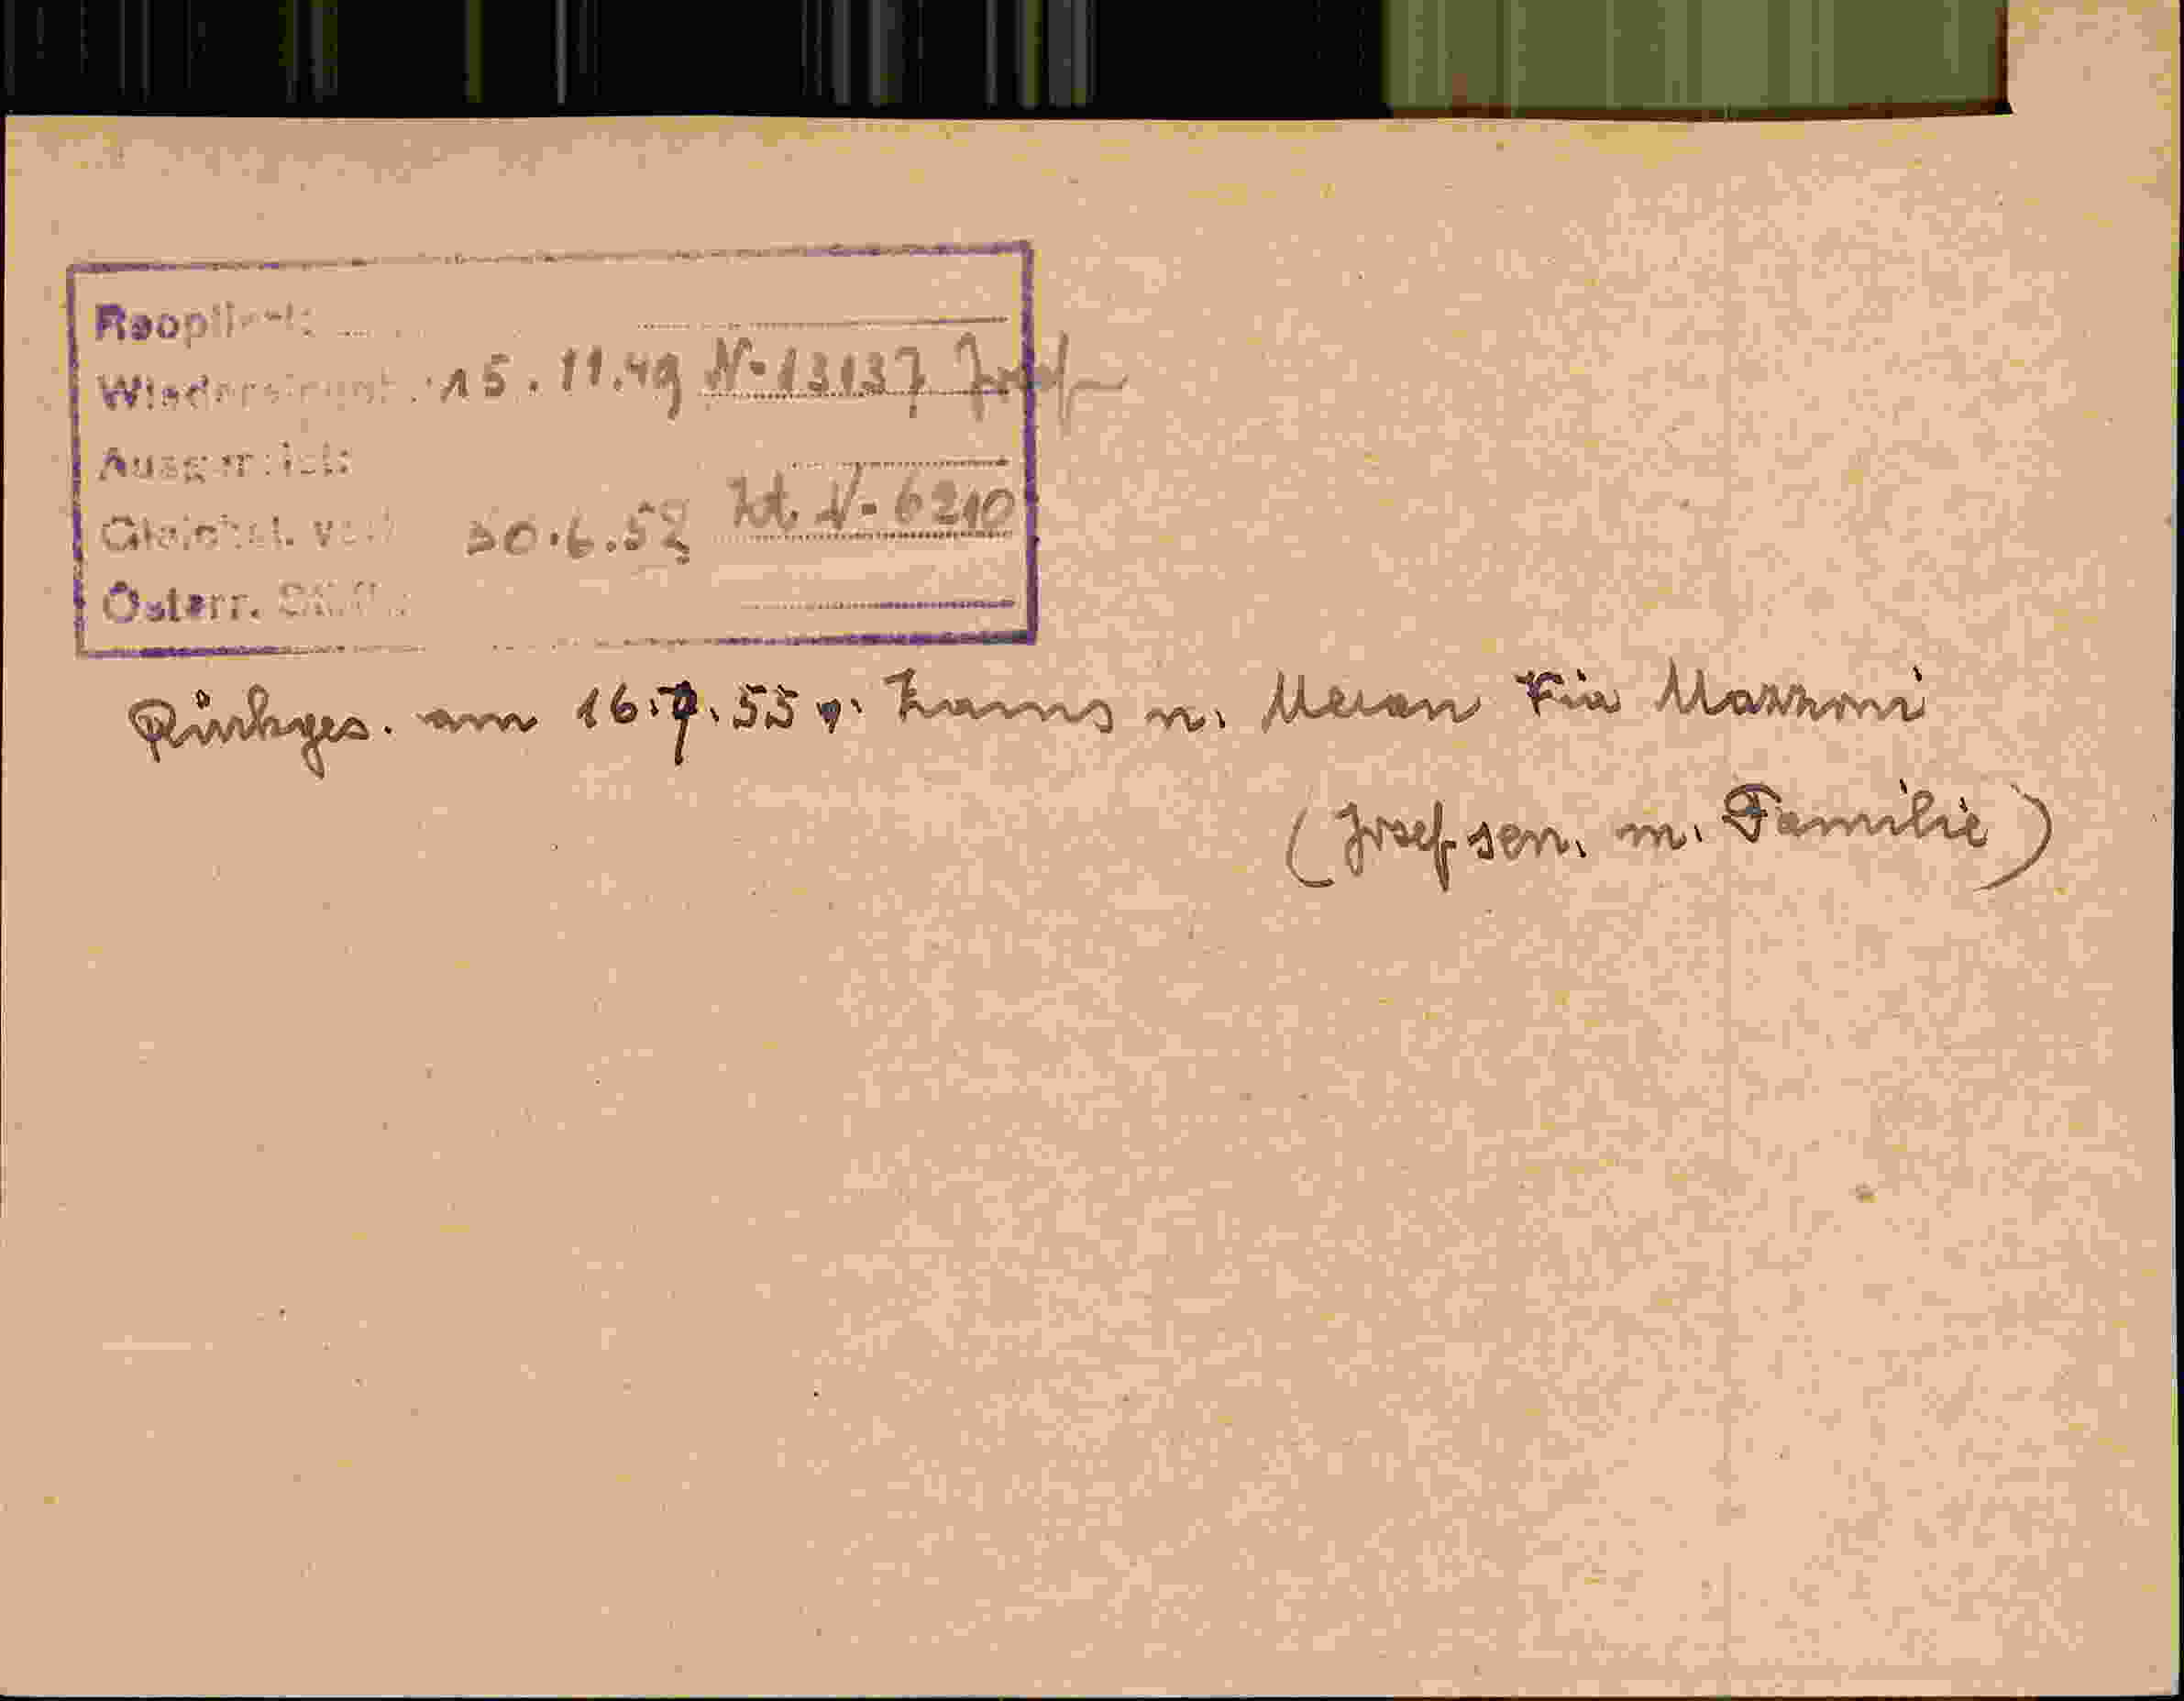 Reoptiert:
Wiedereingeb. 15.11.49 N-13137 Josef
Ausgereist:
Gleichst. verl. 30.6.52 Zt. N- 6210
Österr.
Rückges. am 16.7.55 v. Zams n. Meran Via Mazzoni
(Josef sen. m. Familie)